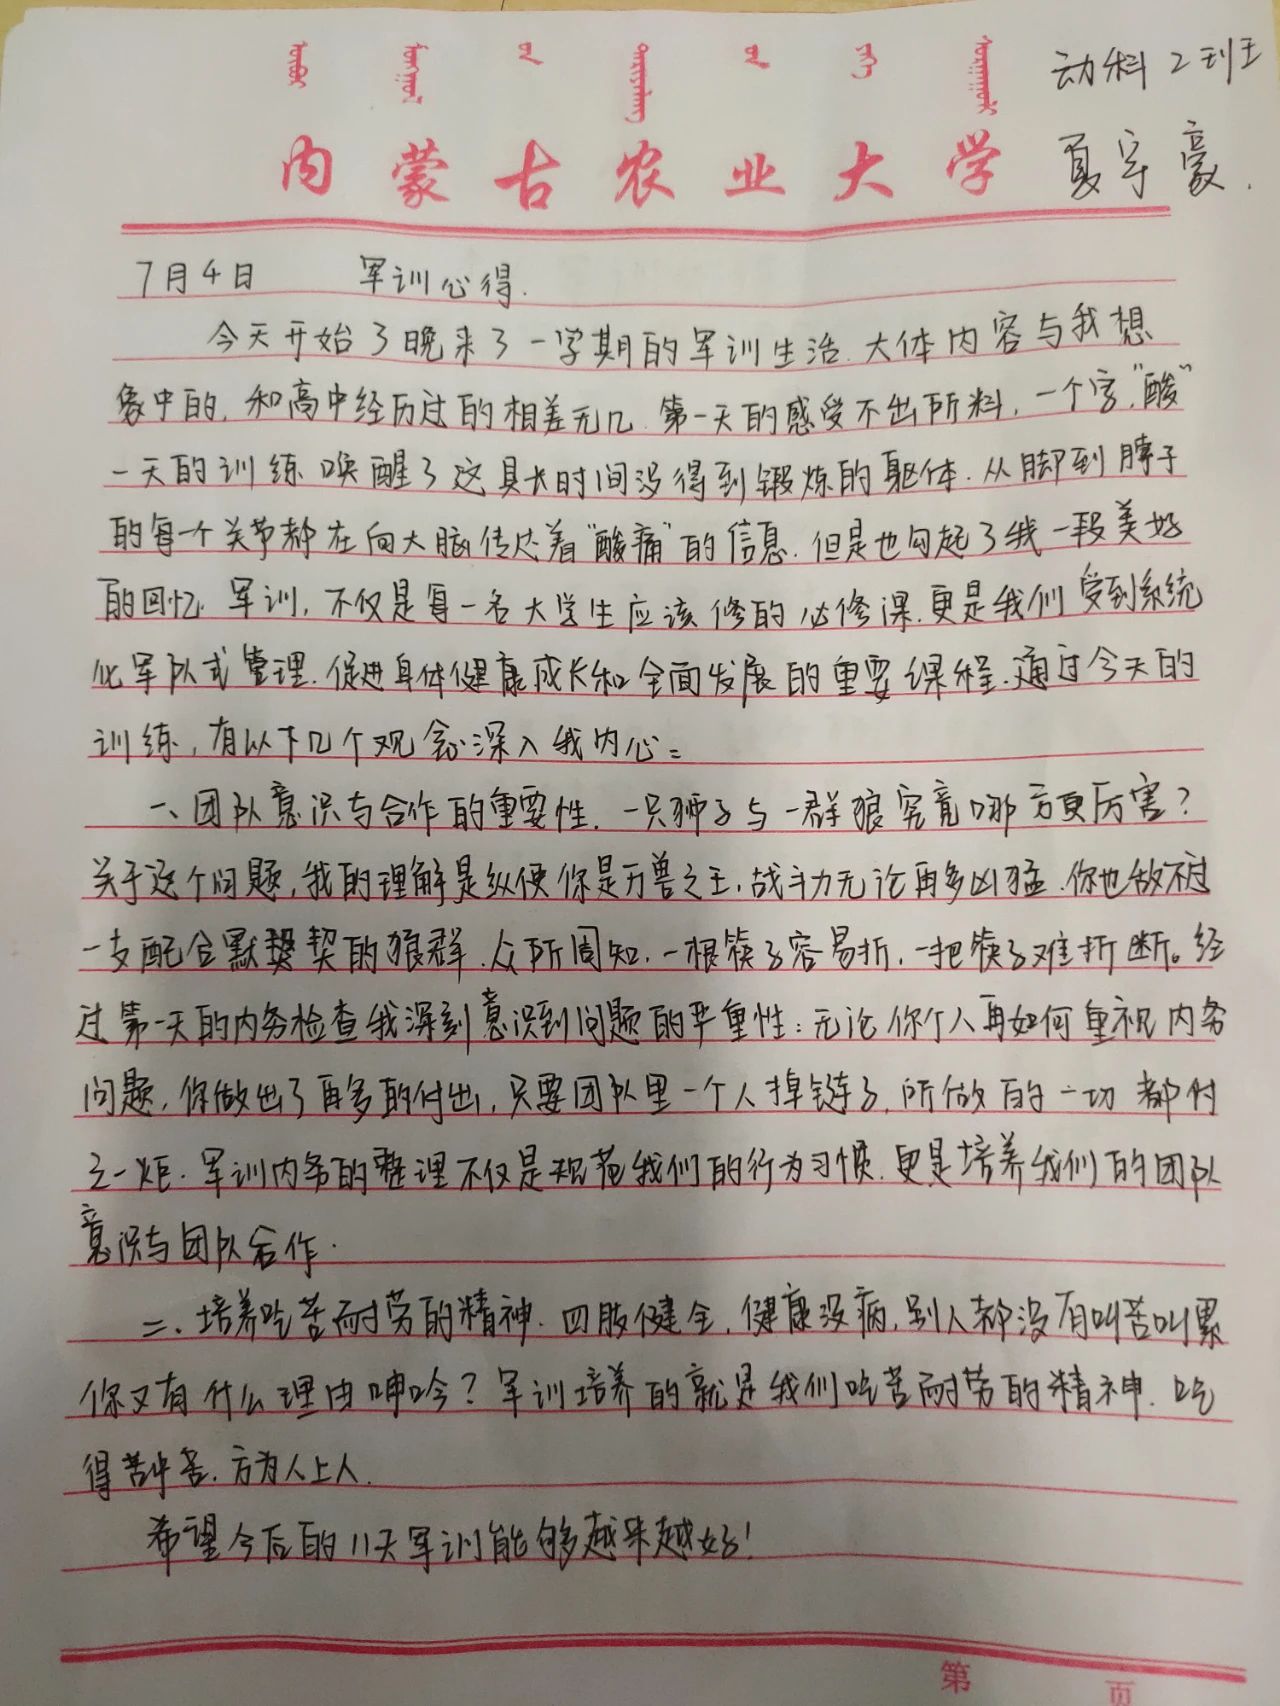 动科2班
夏宇豪.
内蒙古农业大学
7月4日 军训心得.
今天开始了晚来了一学期的军训生活.大体内容与我想
象中的,和高中经历过的相差无几.第一天的感受不出所料,一个字,"酸"
一天的训练唤醒了这具长时间没得到锻炼的躯体.从脚到脖子
的每一个关节都在向大脑传达着"酸痛"的信息.但是也勾起了我一段美好
的回忆.军训,不仅是每一名大学生应该修的必修课.更是我们受到系统
化军队式管理.促进身体健康成长和全面发展的重要课程.通过今天的
训练,有以下几个观念深入我内心:
一、团队意识与合作的重要性.一只狮子与一群狼究竟哪方更厉害?
关于这个问题,我的理解是纵使你是万兽之王,战斗力无论再多凶猛.你也敌不过
一支配合默契的狼群.众所周知.一根筷子容易折,一把筷子难折断。经
过第一天的内务检查我深刻意识到问题的严重性:无论你个人再如何重视内务
问题,你做出了再多的付出,只要团队里一个人掉链子,所做的一切都付
之一炬.军训内务的整理不仅是规范我们的行为习惯.更是培养我们的团队
意识与团队合作.
二、培养吃苦耐劳的精神.四肢健全,健康没病,别人都没有叫苦叫累
你又有什么理由呻吟?军训培养的就是我们吃苦耐劳的精神.吃
得苦中苦.方为人上人.
希望今后的11天军训能够越来越好!
第 页